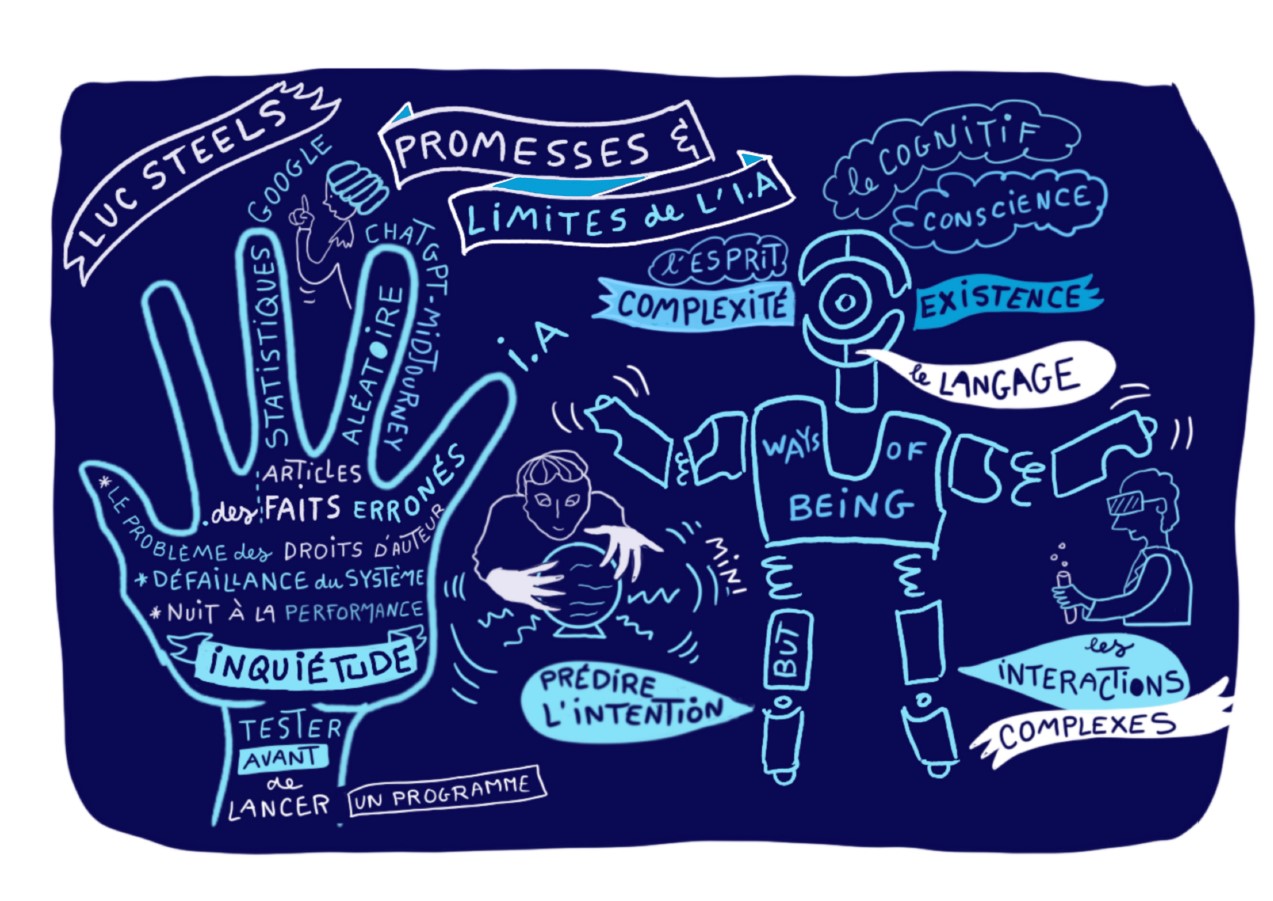 LUC STEELS
PROMESSES &
LIMITES de L'I.A
GOOGLE
CHATGPT-MIDJOURNEY
I.A
STATISTIQUES
ALÉATOIRE
ARTICLES
des FAITS ERRONÉS
*LE PROBLÈME des DROITS D'AUTEUR
*DÉFAILLANCE du SYSTÈME
*NUIT À LA PERFORMANCE
INQUIÉTUDE
TESTER
AVANT
de
LANCER
UN PROGRAMME
le COGNITIF
CONSCIENCE
l'ESPRIT
COMPLEXITÉ
EXISTENCE
le LANGAGE
WAYS OF
BEING
MINI
BUT
PRÉDIRE
L'INTENTION
les
INTERACTIONS
COMPLEXES